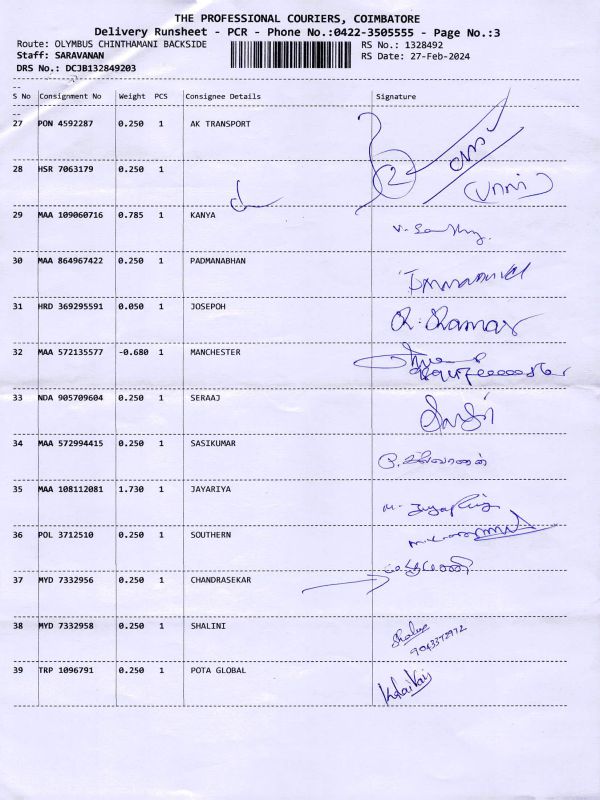 THE PROFESSIONAL COURIERS, COIMBATORE
Delivery Runsheet - PCR - Phone No.:0422-3505555 - Page No.:3
Route: OLYMBUS CHINTHAMANI BACKSIDE RS No.: 1328492
Staff: SARAVANAN RS Date: 27-Feb-2024
DRS No.: DCJB132849203
S No Consignment No Weight PCS Consignee Details Signature
27 PON 4592287 0.250 1 AK TRANSPORT
28 HSR 7063179 0.250 1
2
29 MAA 109060716 0.785 1 KANYA
30 MAA 864967422 0.250 1 PADMANABHAN
31 HRD 369295591 0.050 1 JOSEPOH
32 MAA 572135577 -0.680 1 MANCHESTER
33 NDA 905709604 0.250 1 SERAAJ
34 MAA 572994415 0.250 1 SASIKUMAR
35 MAA 108112081 1.730 1 JAYARIYA
36 POL 3712510 0.250 1 SOUTHERN
37 MYD 7332956 0.250 1 CHANDRASEKAR
38 MYD 7332958 0.250 1 SHALINI
9043372972
39 TRP 1096791 0.250 1 POTA GLOBAL